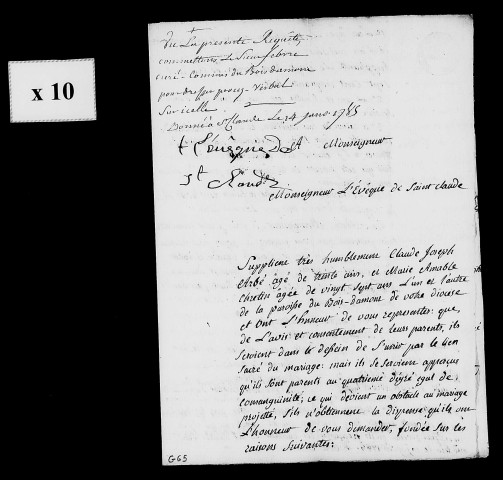 x 10
Vu La presente Requête,
commettons Le Sieur febvre
curé-Commis du Boisdamon
pour dresser procez-Verbal
Sur icelle
Donné à St Claude Le 24 janv. 1785
† L'évêque De St
St Claude
Monseigneur
Monseigneur L'Evêque de Saint Claude
Supplient très humblement Claude Joseph
Arbé agé de trente ans, et Marie Amable
chretin âgée de vingt Sept ans L'un et l'autre
de la paroisse du Bois-damont de votre diocese
et ont L'honneur de vous representer: que
de L'avis et consentement de leurs parents, ils
seroient dans le dessein de S'unir par le lien
sacré du mariage: mais ils se seroient apperçus
qu'ils sont parents au quatrieme dégré egal de
consanguinité; ce qui devient un obstacle au mariage
projetté, s'ils n'obtiennent la dispense qu'ils ont
L'honneur de vous demander, fondée sur les
raisons suivantes:
G65